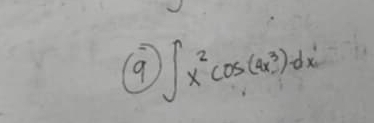 ⑨ ∫ x² cos(4x³) dx